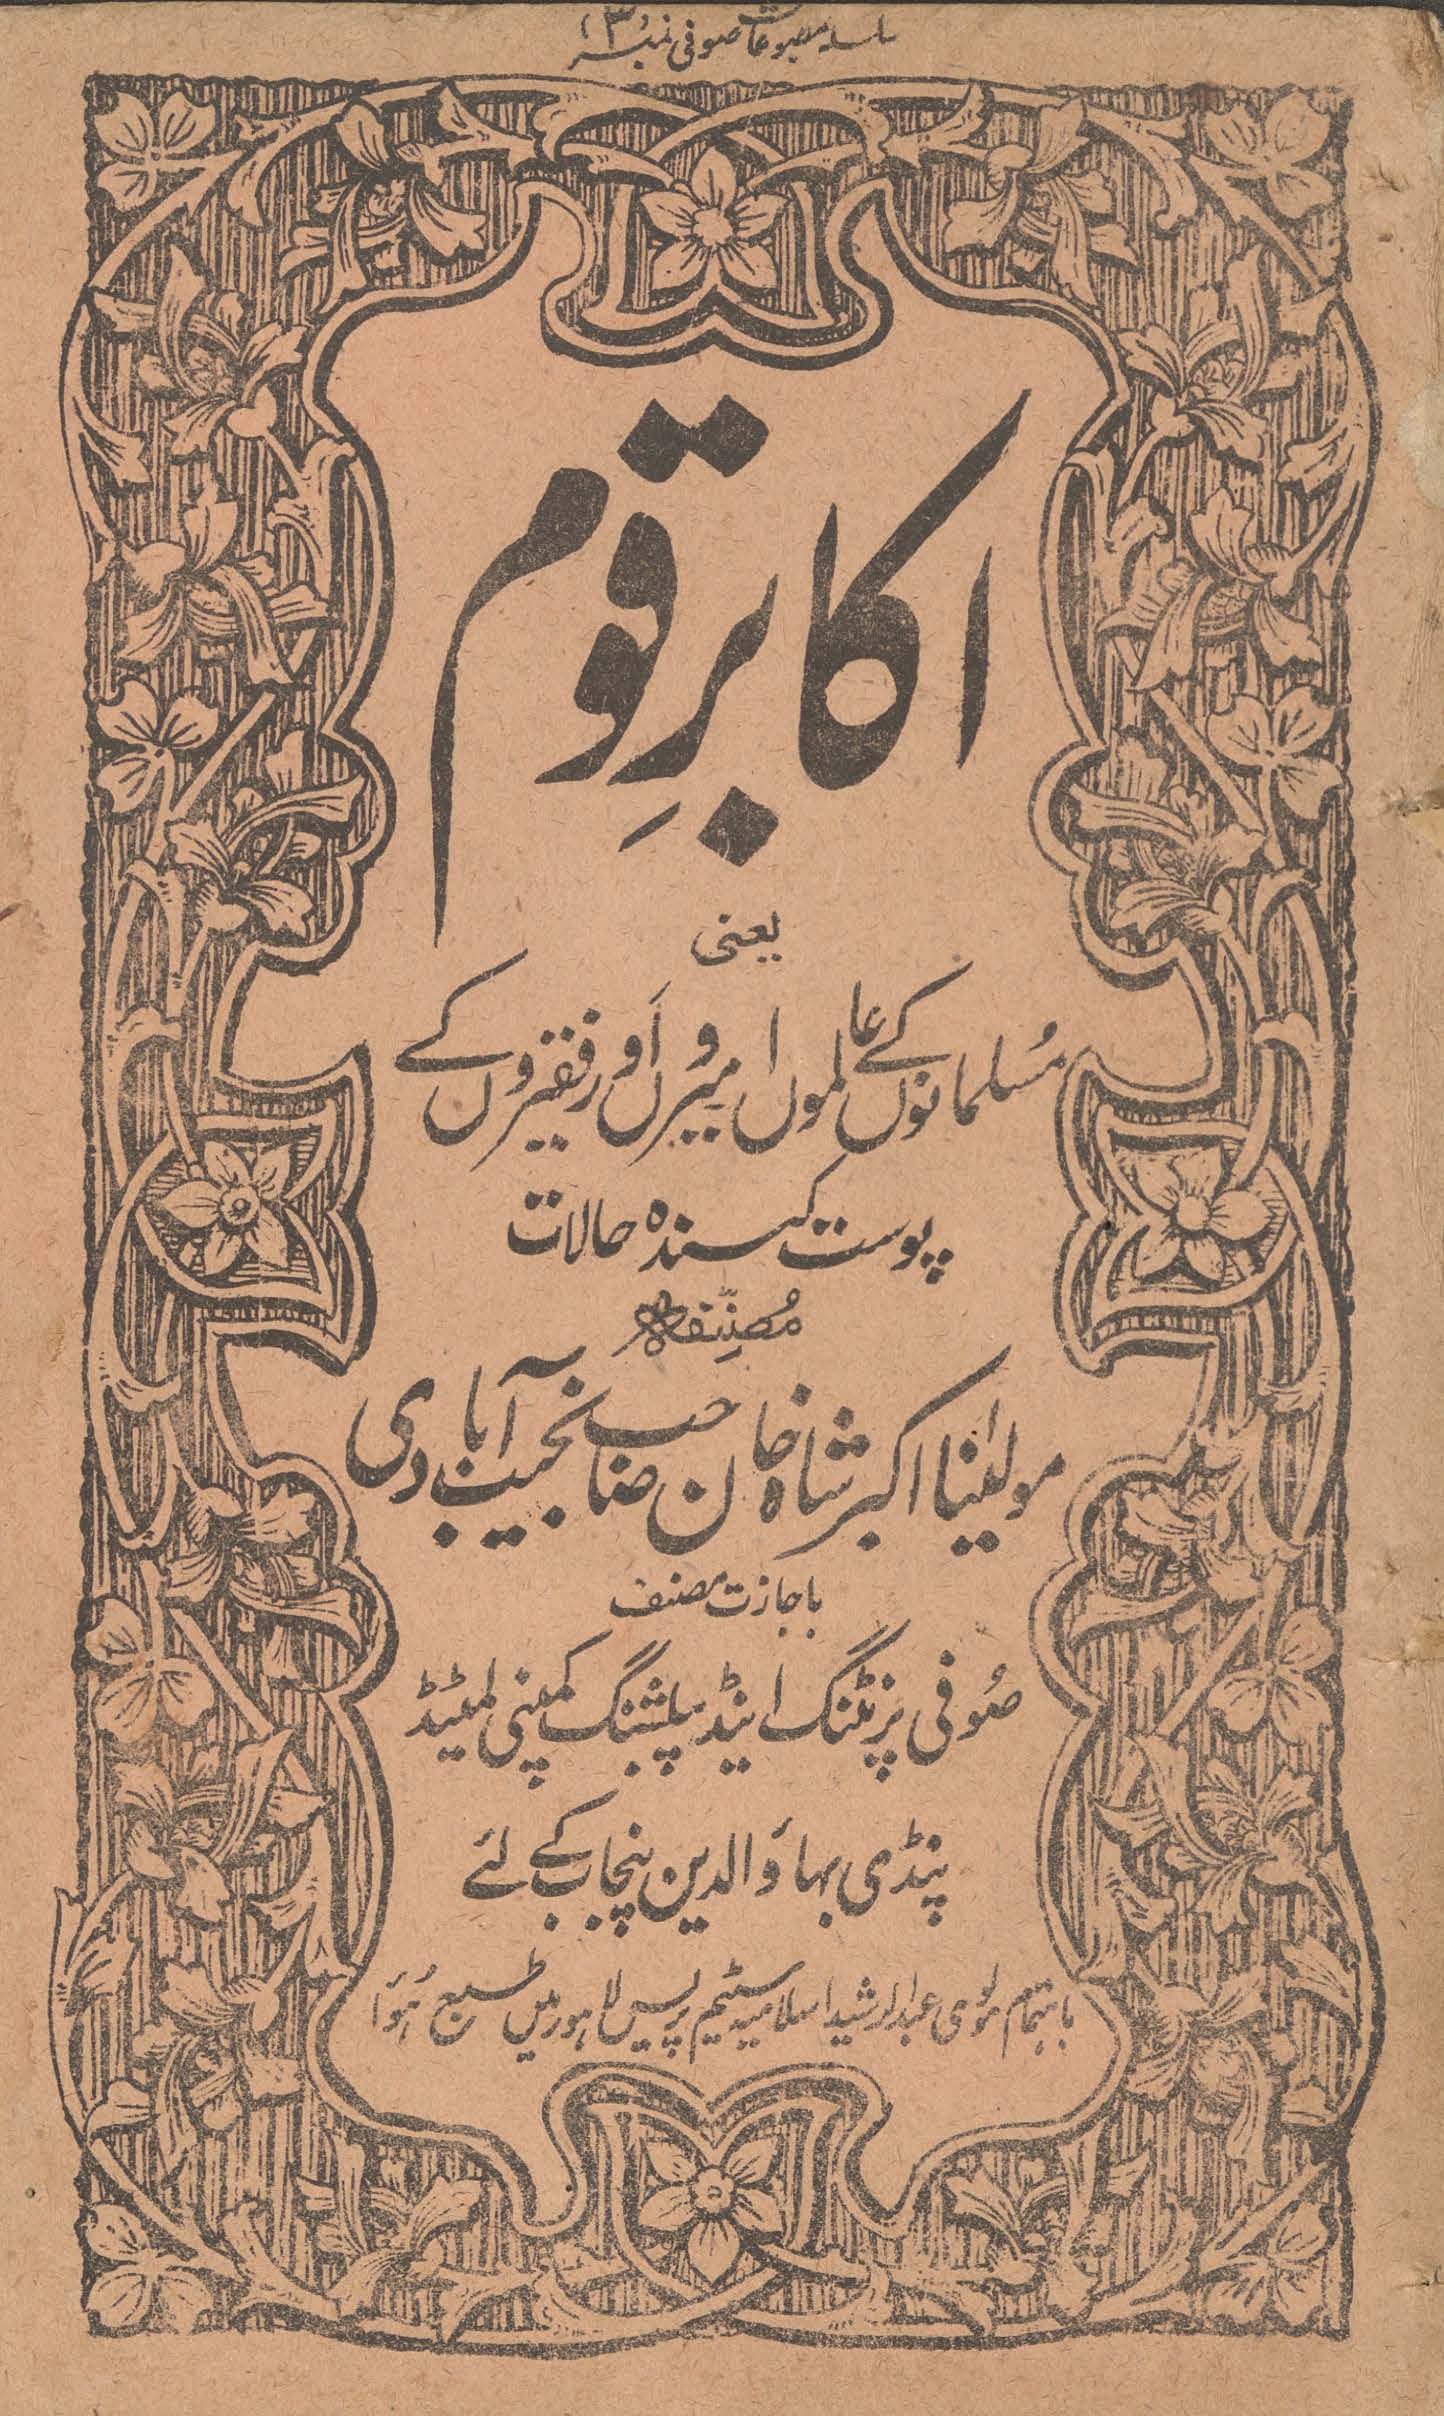 سلسلہ مطبوعات صوفی نمبر ۱۳
اکابرِ قوم
یعنی
مُسلمانوں کے عالموں امیروں اَور فقیروں کے
پوست کندہ حالات
مُصنّفہ
مولٰینا اکبر شاہ خان صاحب نجیب آبادی
باجازت مصنف
صُوفی پرنٹنگ اینڈ پبلشنگ کمپنی لمیٹیڈ
پنڈی بہاؤالدین پنجاب کے لئے
باہتمام مولوی عبدالرشید اسلامیہ سٹیم پریس لاہور میں طبع ہُوَا